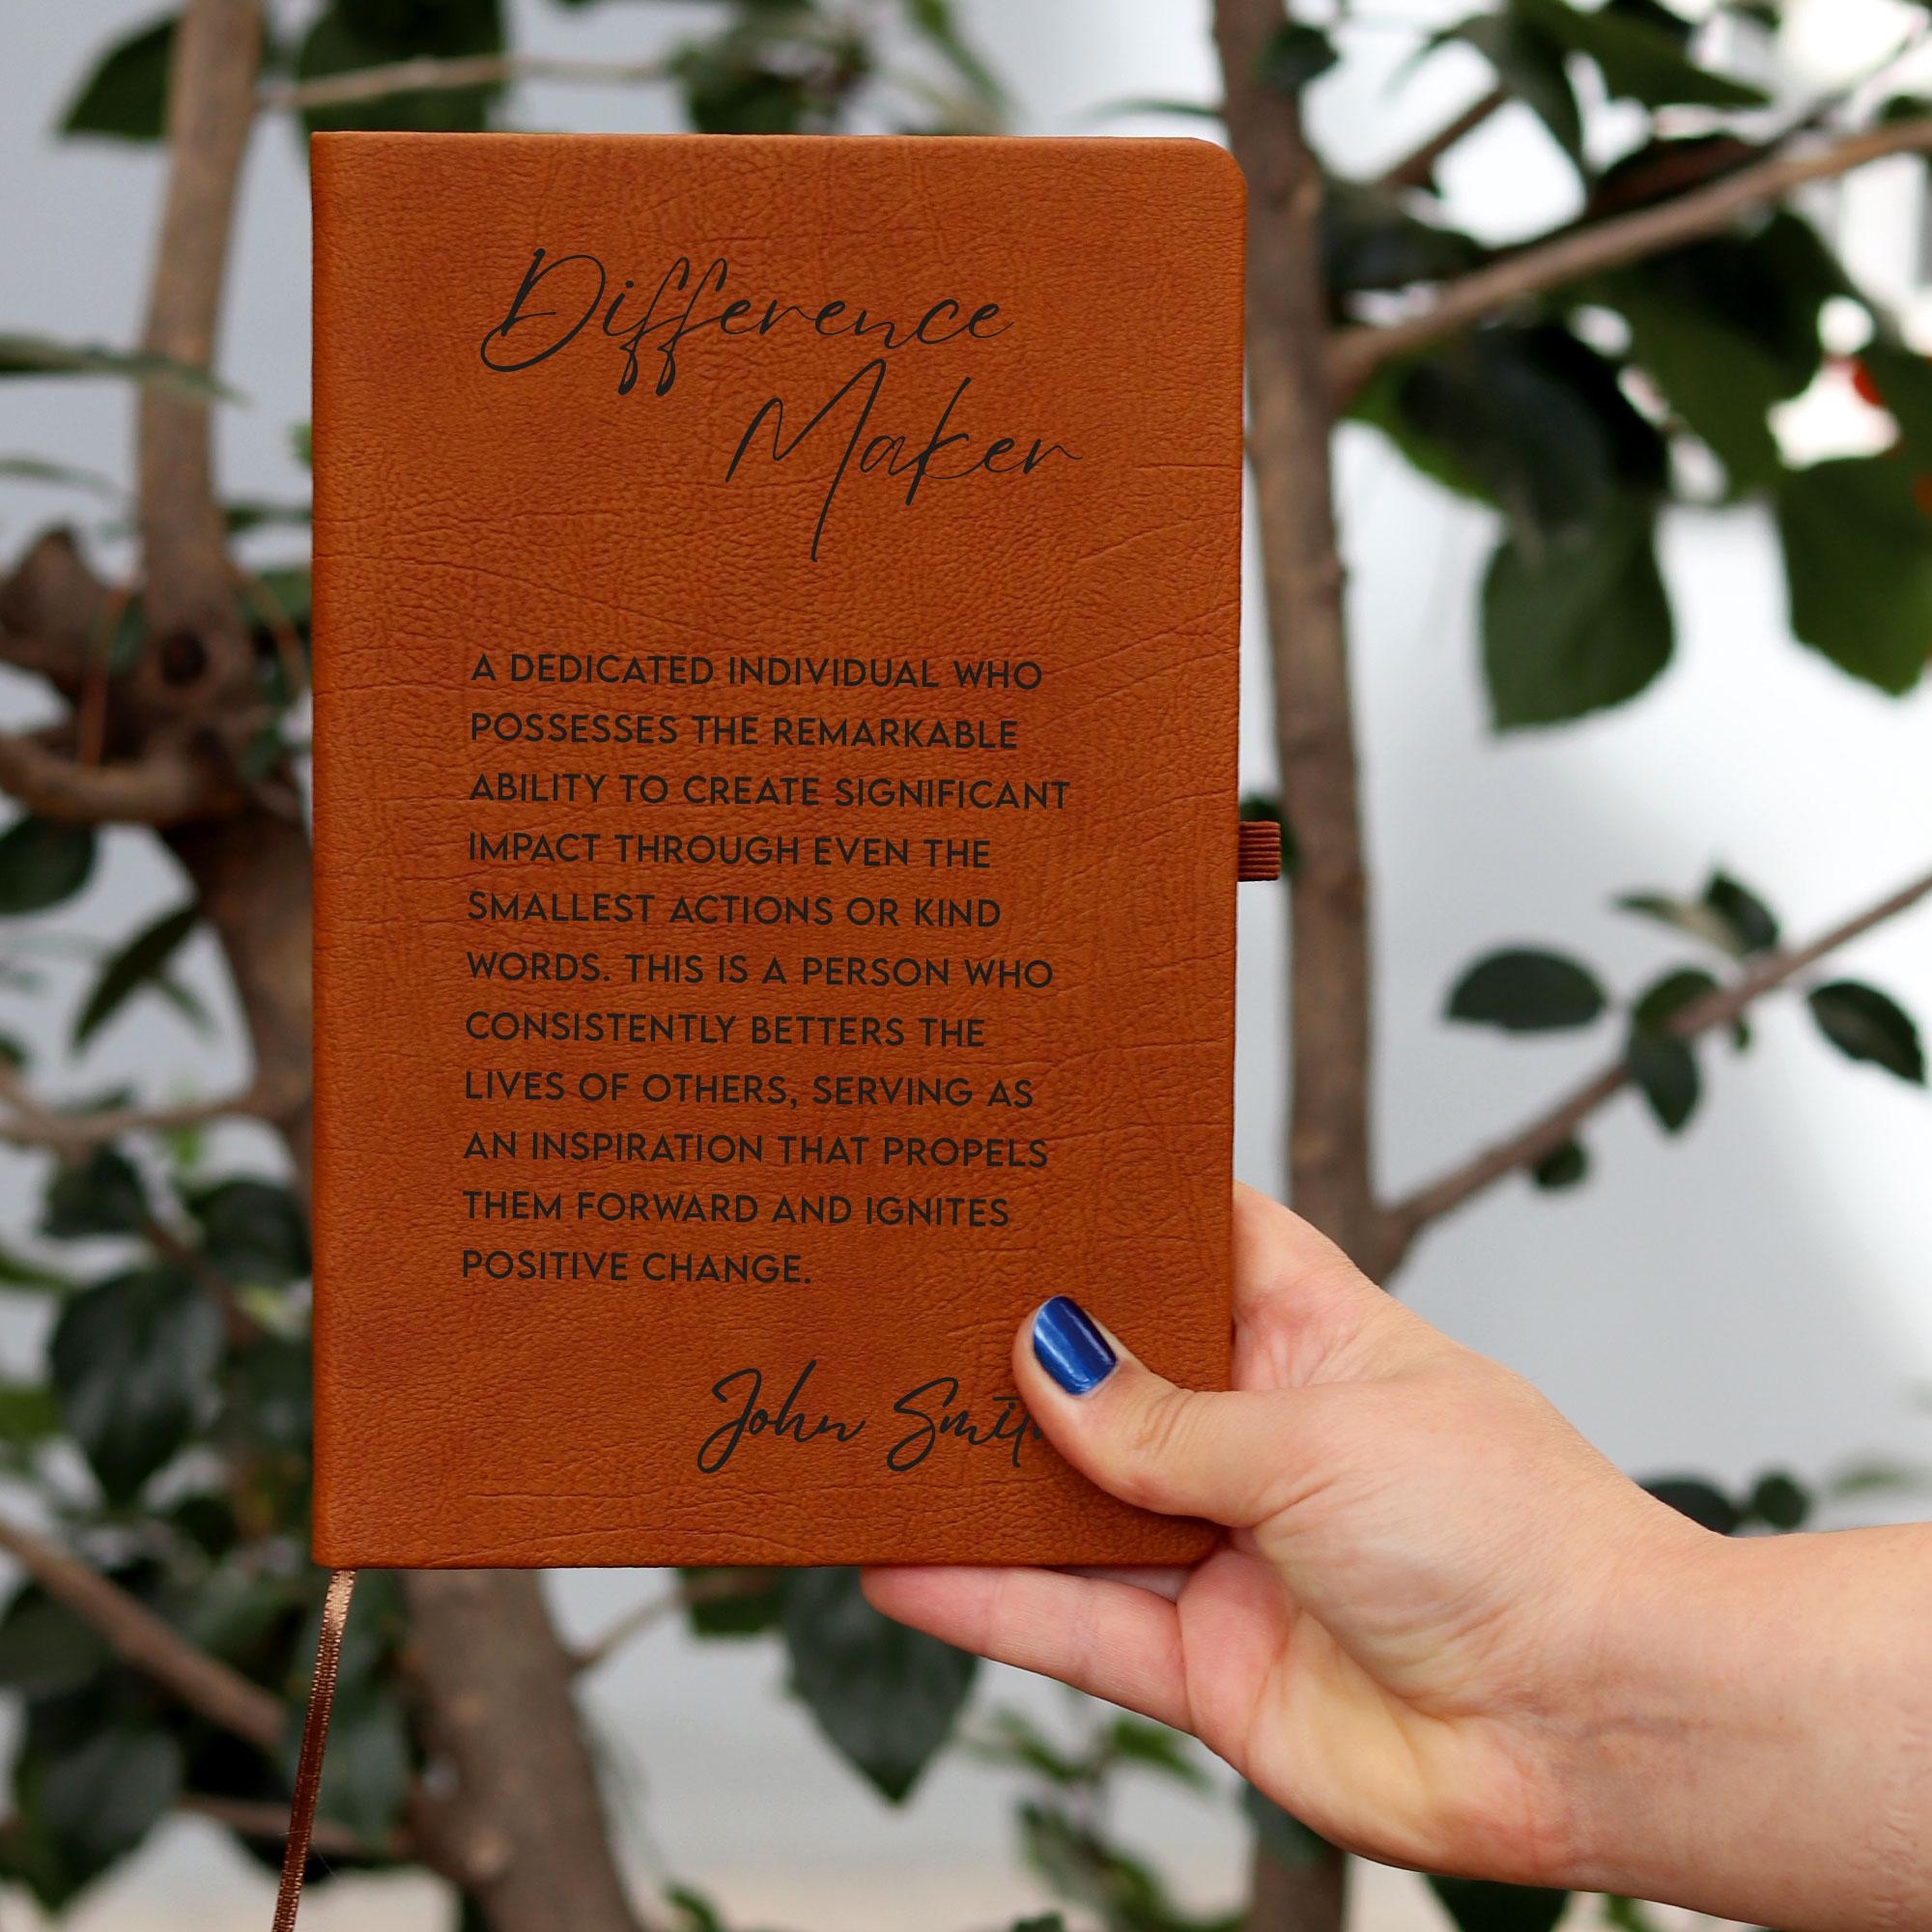 Difference
Maker
A DEDICATED INDIVIDUAL WHO
POSSESSES THE REMARKABLE
ABILITY TO CREATE SIGNIFICANT
IMPACT THROUGH EVEN THE
SMALLEST ACTIONS OR KIND
WORDS. THIS IS A PERSON WHO
CONSISTENTLY BETTERS THE
LIVES OF OTHERS, SERVING AS
AN INSPIRATION THAT PROPELS
THEM FORWARD AND IGNITES
POSITIVE CHANGE.
John